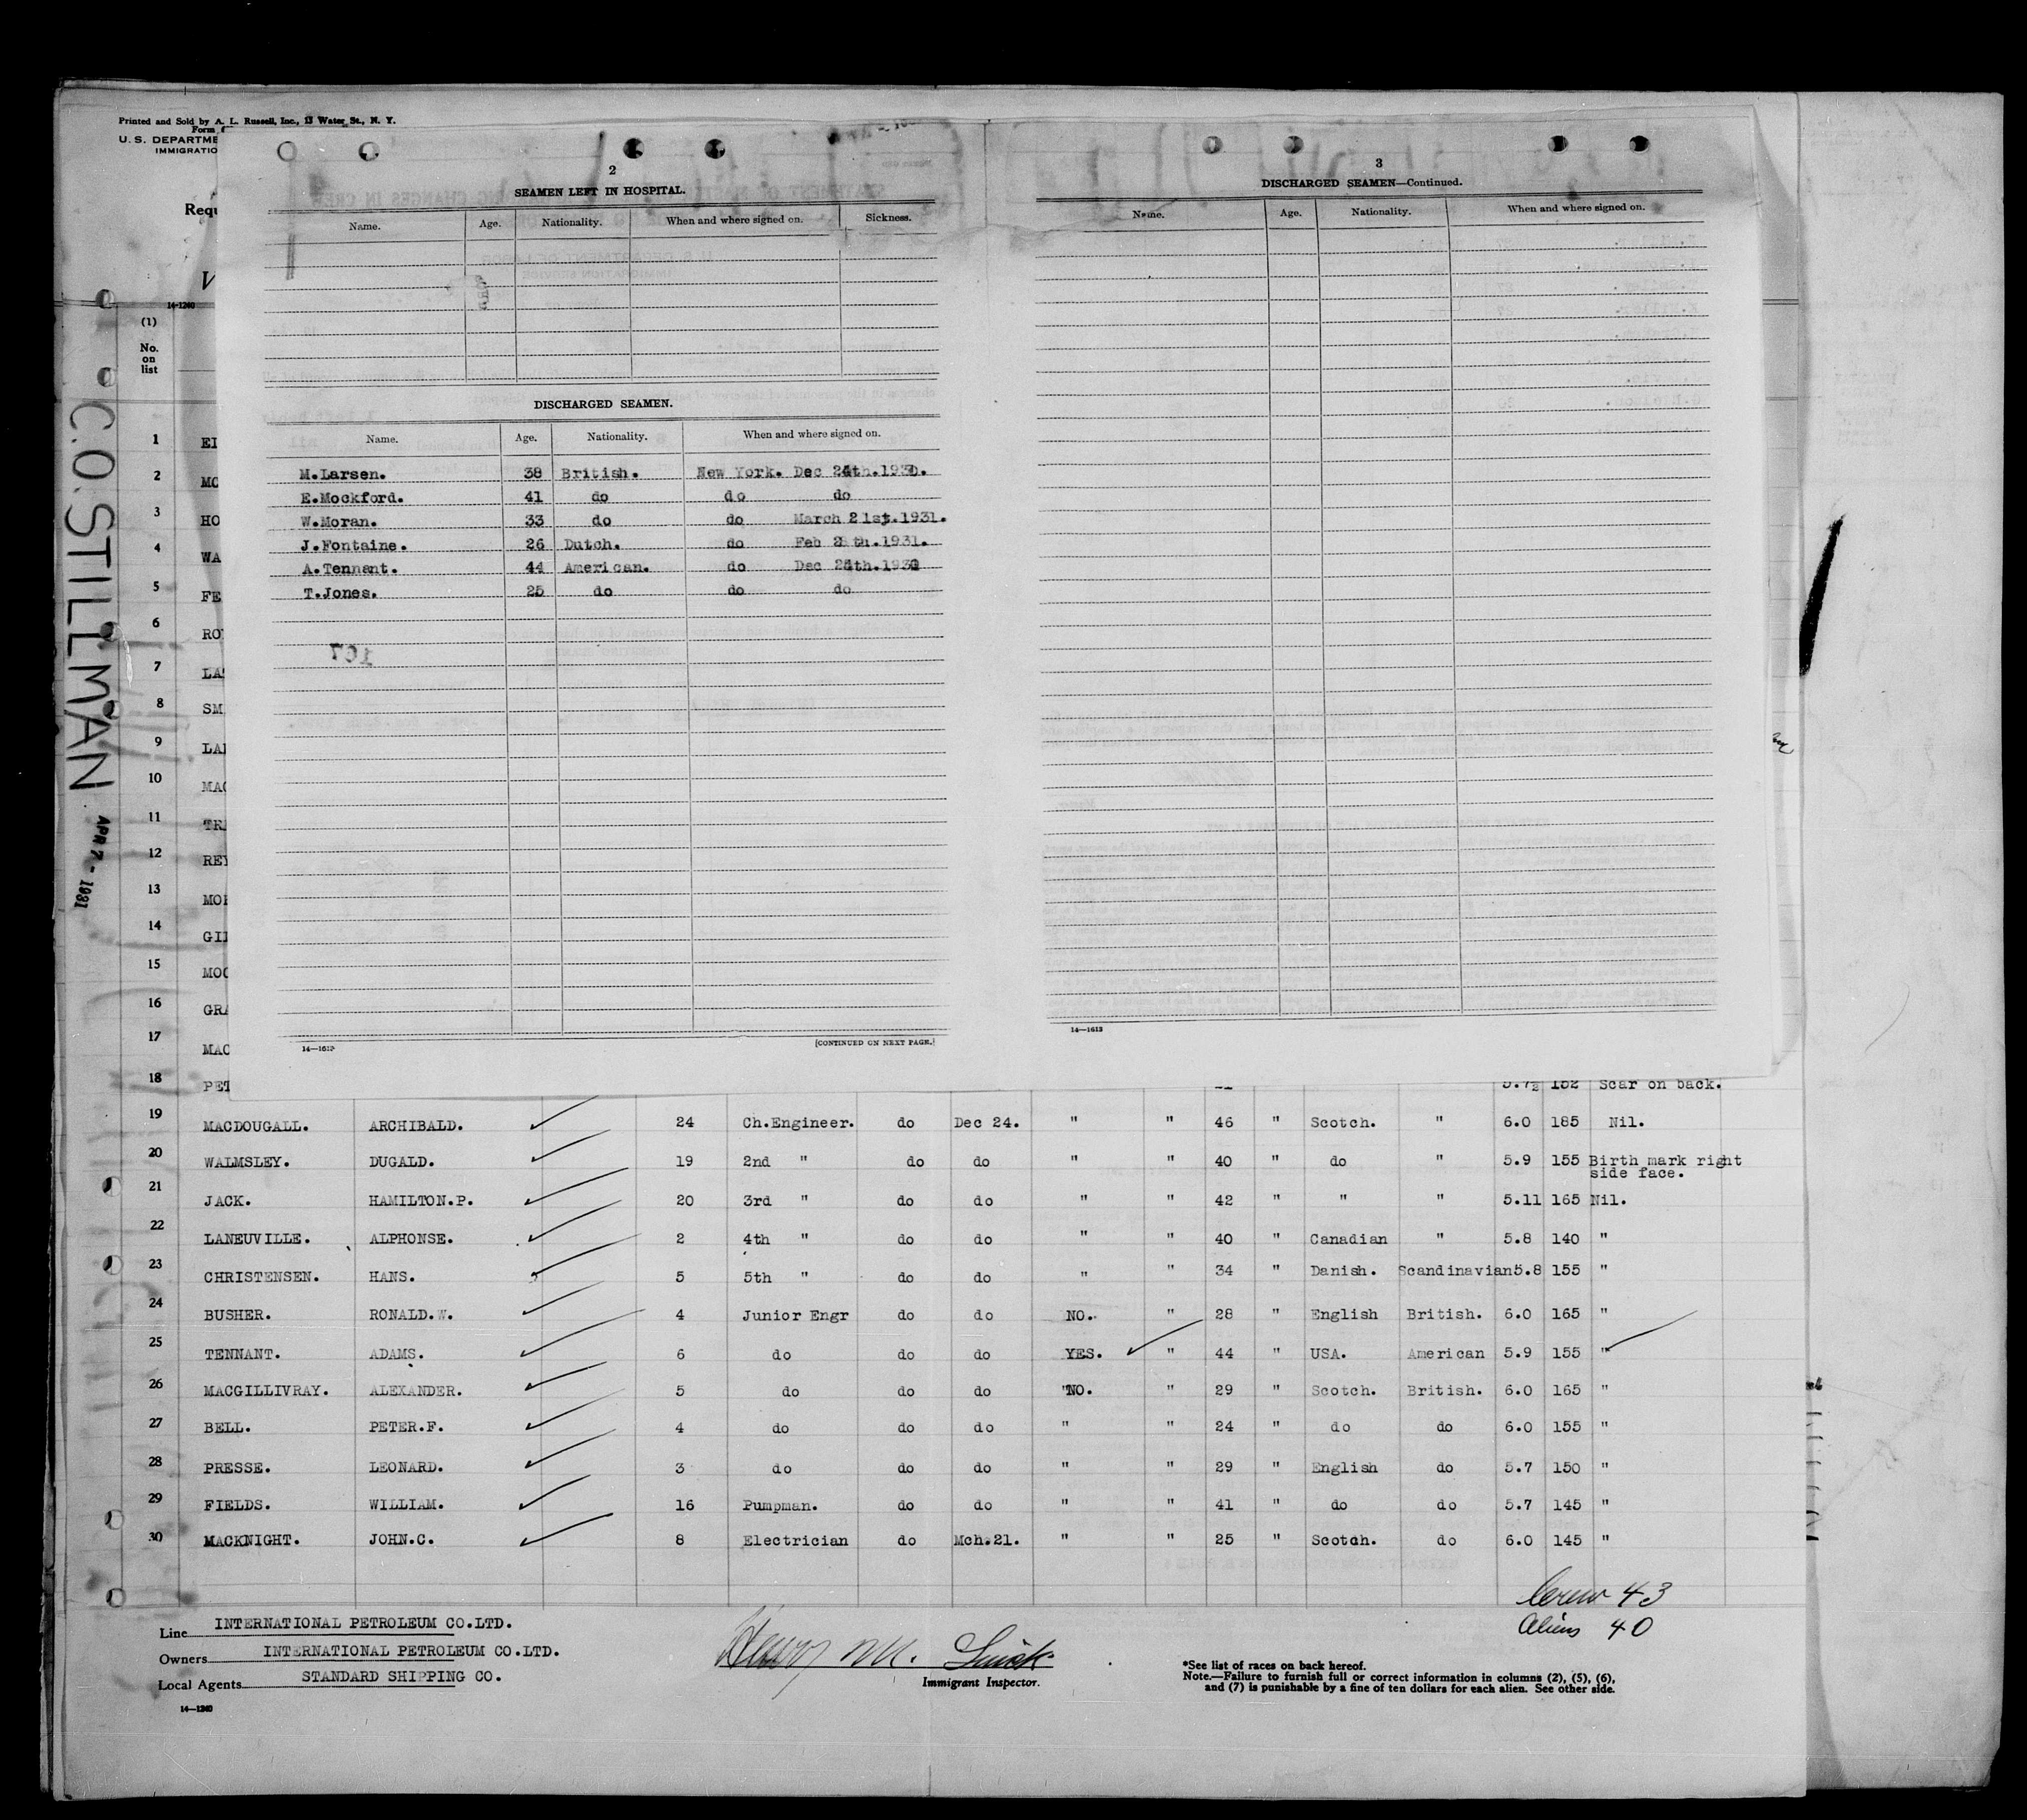 Printed and Sold by A. L. Russell, Inc., 13 Water St., N. Y.
Form
U. S. DEPARTME
IMMIGRATIO
Requ
14-1240
(1)
No.
on
list
C.O. STILLMAN
APR 7 - 1931
2
SEAMEN LEFT IN HOSPITAL.
Name. Age. Nationality. When and where signed on. Sickness.
DISCHARGED SEAMEN.
Name. Age. Nationality. When and where signed on.
M.Larsen. 38 British. New York. Dec 24th.1930.
E.Mockford. 41 do do do
W.Moran. 33 do do March 21st.1931.
J.Fontaine. 26 Dutch. do Feb th.1931.
A.Tennant. 44 American. do Dec 24th.1930
T.Jones. 25 do do do
167
14—1613
[CONTINUED ON NEXT PAGE.]
3
DISCHARGED SEAMEN—Continued.
Name. Age. Nationality. When and where signed on.
14—1613
1 EI
2 MC
3 HO
4 WA
5 FE
6 RO
7 LA
8 SM
9 LA
10 MAC
11 TR
12 REY
13 MO
14 GI
15 MOC
16 GRA
17 MAC
18 PET 5.7½ 152 Scar on back.
19 MACDOUGALL. ARCHIBALD. 24 Ch.Engineer. do Dec 24. " " 46 " Scotch. " 6.0 185 Nil.
20 WALMSLEY. DUGALD. 19 2nd " do do " " 40 " do " 5.9 155 Birth mark right
side face.
21 JACK. HAMILTON.P. 20 3rd " do do " " 42 " " " 5.11 165 Nil.
22 LANEUVILLE. ALPHONSE. 2 4th " do do " " 40 " Canadian " 5.8 140 "
23 CHRISTENSEN. HANS. 5 5th " do do " " 34 " Danish. Scandinavian 5.8 155 "
24 BUSHER. RONALD.W. 4 Junior Engr do do NO. " 28 " English British. 6.0 165 "
25 TENNANT. ADAMS. 6 do do do YES. " 44 " USA. American 5.9 155 "
26 MACGILLIVRAY. ALEXANDER. 5 do do do NO. " 29 " Scotch. British. 6.0 165 "
27 BELL. PETER.F. 4 do do do " " 24 " do do 6.0 155 "
28 PRESSE. LEONARD. 3 do do do " " 29 " English do 5.7 150 "
29 FIELDS. WILLIAM. 16 Pumpman. do do " " 41 " do do 5.7 145 "
30 MACKNIGHT. JOHN.C. 8 Electrician do Mch.21. " " 25 " Scotch. do 6.0 145 "
Crew 43
Aliens 40
Line INTERNATIONAL PETROLEUM CO.LTD.
Owners INTERNATIONAL PETROLEUM CO.LTD.
Local Agents STANDARD SHIPPING CO.
14—1240
Henry
Immigrant Inspector.
*See list of races on back hereof.
Note.—Failure to furnish full or correct information in columns (2), (5), (6),
and (7) is punishable by a fine of ten dollars for each alien. See other side.